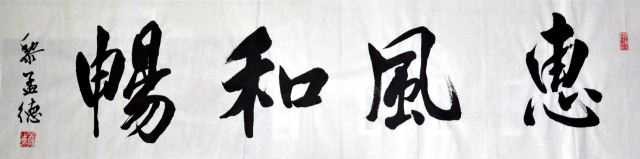 惠風和暢
黎孟德